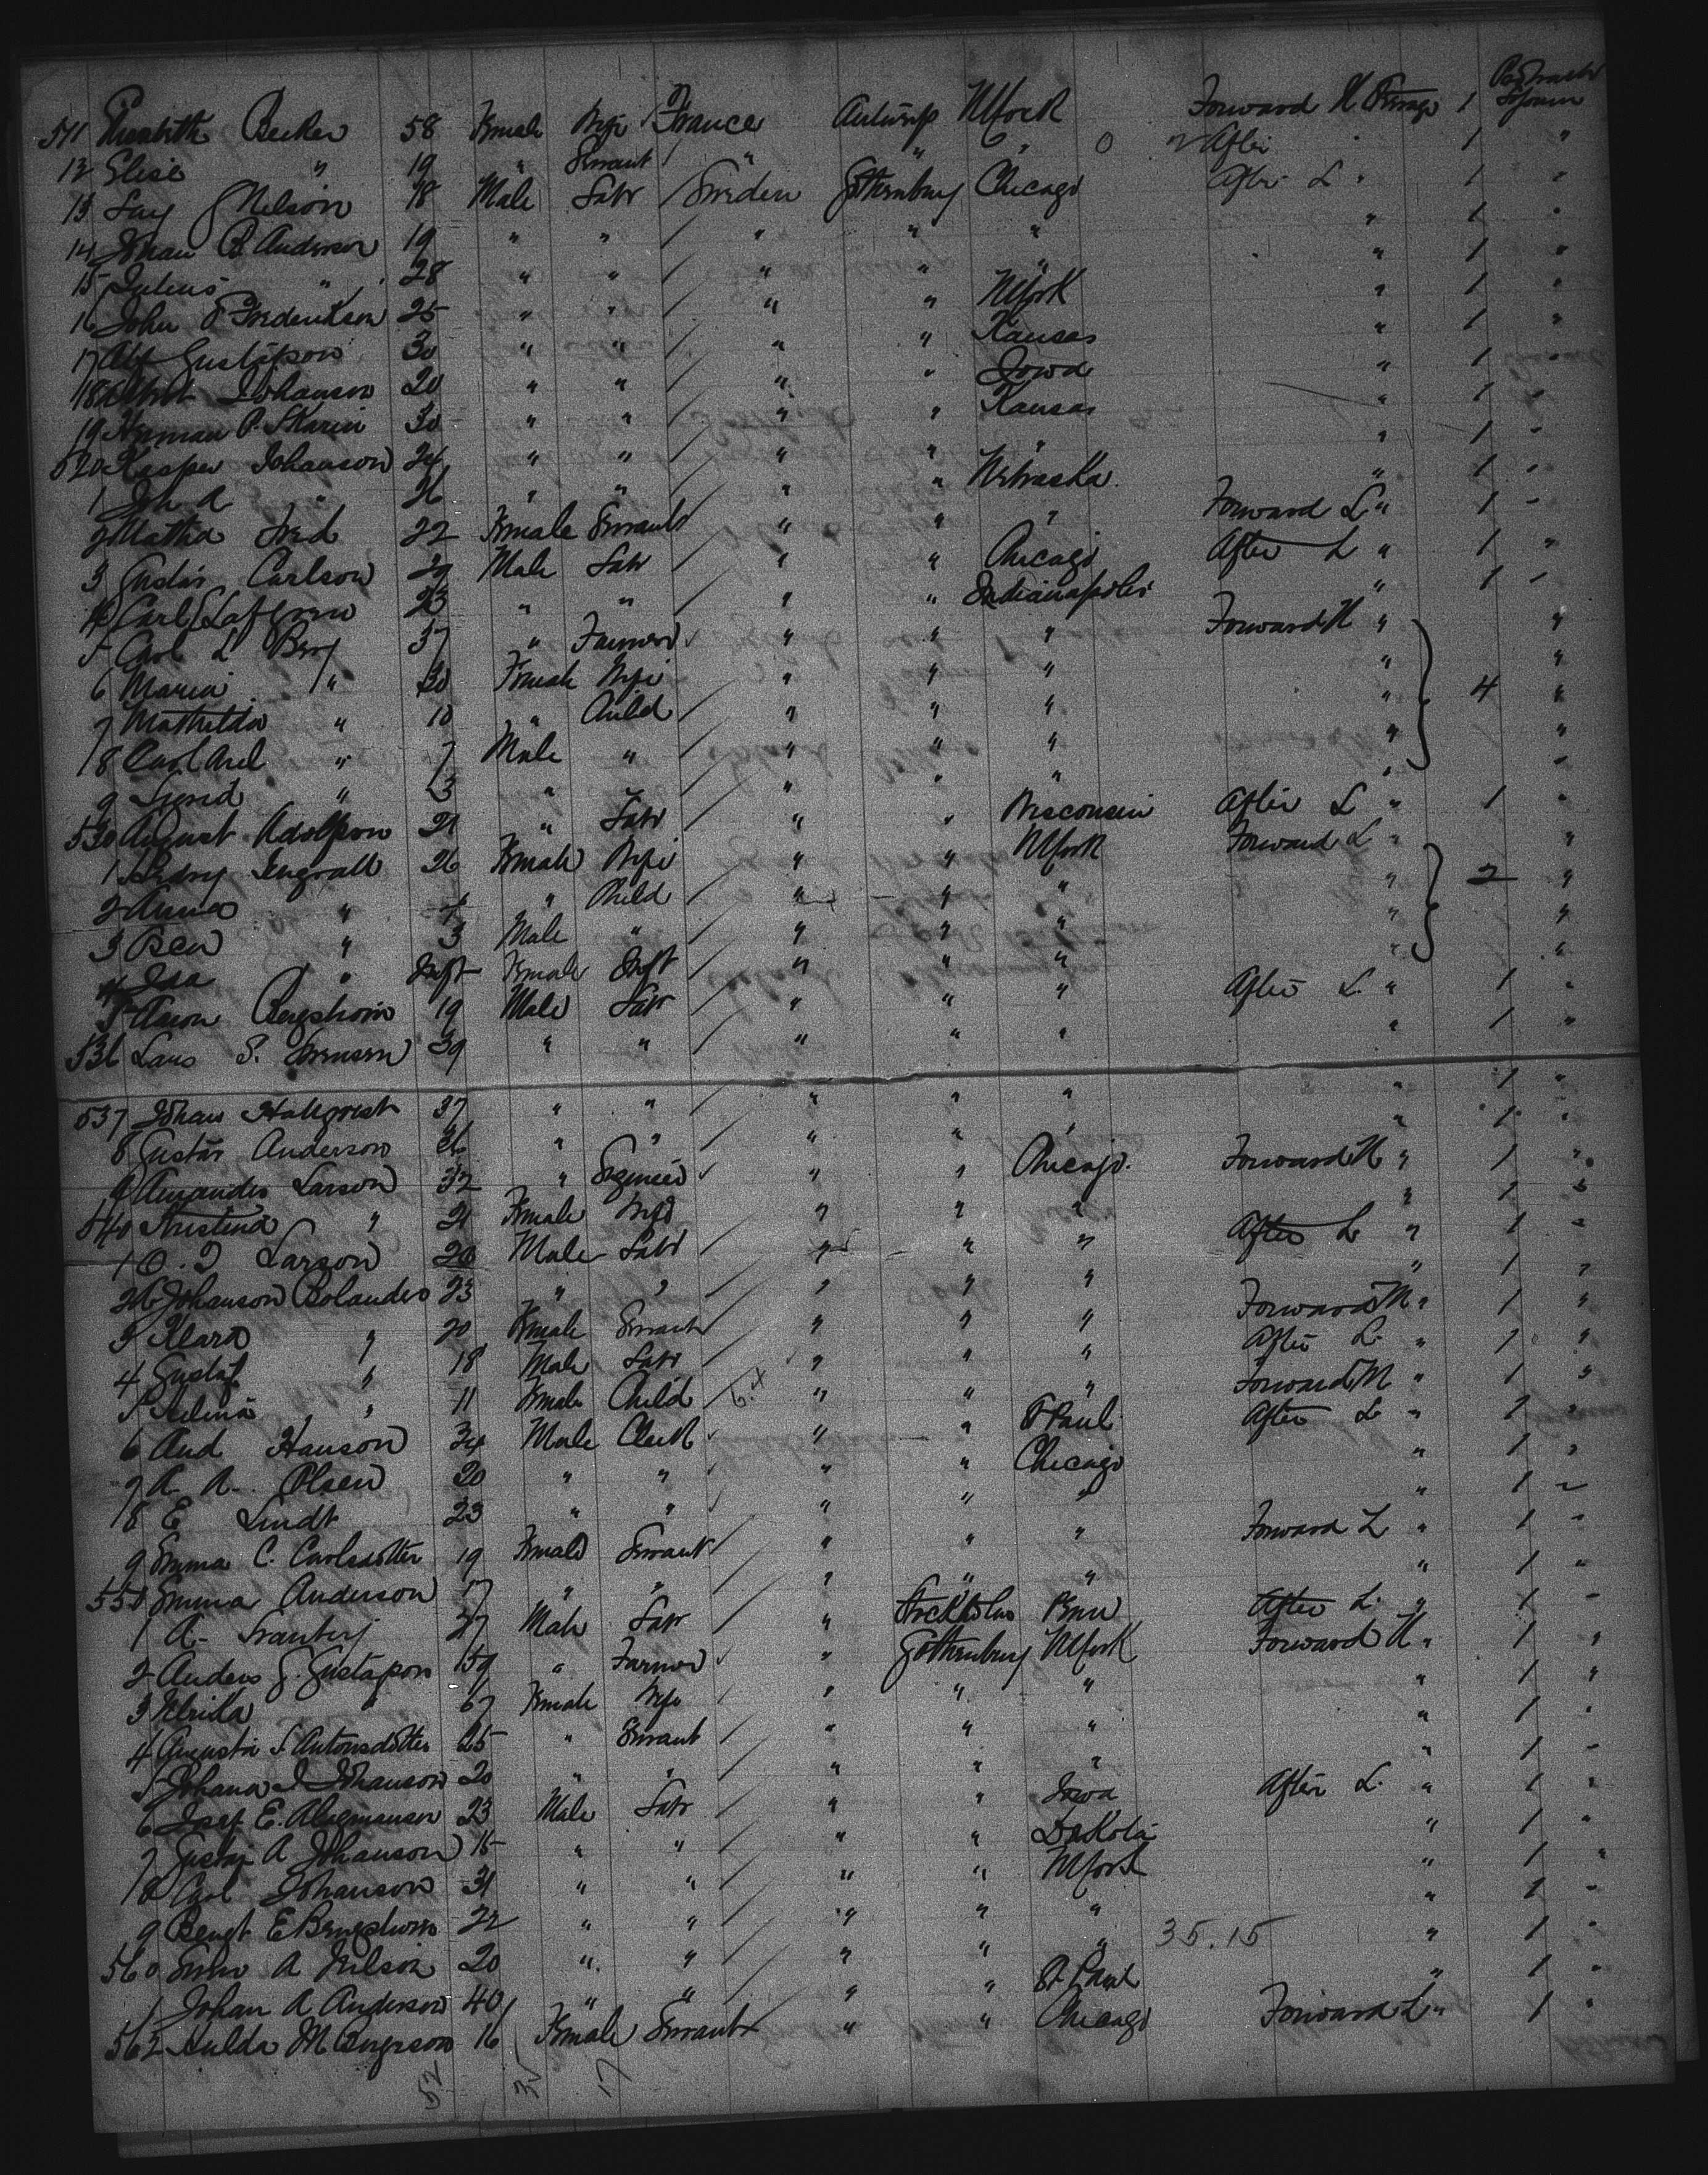 Contract Sojourn
511 Elisabeth Becker 58 Female Wife France Antwerp N York Forward U Steerage 1
12 Elise " 19 " Servant " " " 0 After 1 "
13 Nelson 18 Male Labr Sweden Gothenburg Chicago After L " 1 "
14 Johan B Anderson 19 " " " " " " 1 "
15 Julius " 28 " " " " " " 1 "
16 John P Frederikson 25 " " " " N York " 1 "
17 Alf Gustafson 30 " " " " Kansas " 1 "
18 Johanson 20 " " " " Iowa " 1 "
19 Herman P. Skarin 30 " " " " Kansas " 1 "
520 Kasper Johanson 24 " " " " " " 1 "
1 Joh A " 26 " " " " Nebraska " 1 "
2 Matha 22 Female Servant " " " Forward L " 1 "
3 Gustav Carlson 29 Male Labr " " Chicago After L " 1 "
4 Carl 23 " " " " Indianapolis " 1 "
5 Carl L Berg 37 " Farmer " " " Forward U " "
6 Maria " 30 Female Wife " " " " "
7 Mathilda " 10 " Child " " " " 4 "
8 Carl Axel " 7 Male " " " " " "
9 Sigrid " 3 " " " " " " "
530 August Adolfson 21 " Labr " " Wisconsin After L " 1 "
1 Hedvig Engvall 26 Female Wife " " N York Forward L " "
2 Anna " 4 " Child " " " " 2 "
3 Ben " 3 Male " " " " " "
4 Ida " Inft Female Inft " " " " "
5 Aaron Bergstrom 19 Male Labr " " " After L " 1 "
536 Lars P. 39 " " " " " " 1 "
537 Johan Hallqvist 37 " " " " " " 1 "
8 Gustav Anderson 26 " " " " " " 1 "
9 Amandus Larson 32 " Engineer " " Chicago Forward U " 1 "
540 Kristina " 21 Female Wife " " " " 1 "
1 O. J Larson 20 Male Labr " " " After L " 1 "
2 Johanson Bolander 23 " " " " " " 1 "
3 Klara " 20 Female Servant " " " Forward U " 1 "
4 Gustaf " 18 Male Labr " " " After L " 1 "
5 Selina " 11 Female Child " " " Forward U " 1 "
6 And Hanson 34 Male Clerk " " St Paul After L " 1 "
7 A. A. Olsen 20 " " " " Chicago " 1 "
8 E Lindt 23 " " " " " " 1 "
9 Emma C. Carlsdotter 19 Female Servant " " " Forward L " 1 "
550 Emma Anderson 17 " " " " " " 1 "
1 A. Tranberg 27 Male Labr " Stockholm Penn After L " 1 "
2 Anders G. Gustafson 59 " Farmer " Gothenburg N York Forward U " 1 "
3 Ulrika " 67 Female Wife " " " " 1 "
4 Augusta S Antonsdotter 25 " Servant " " " " 1 "
5 Johana S Johanson 20 " " " " " " 1 "
6 Josef E. 23 Male Labr " " Iowa After L " 1 "
7 Gustaf A Johanson 15 " " " " Dakota " 1 "
8 Carl Johanson 31 " " " " N York " 1 "
9 Bengt E 22 " " " " " " 1 "
560 A Nilson 20 " " " " " 35.15 " 1 "
1 Johan A Anderson 40 " " " " St Paul " 1 "
562 Hulda M 16 Female Servant " " Chicago Forward L " 1 "
52 35 17